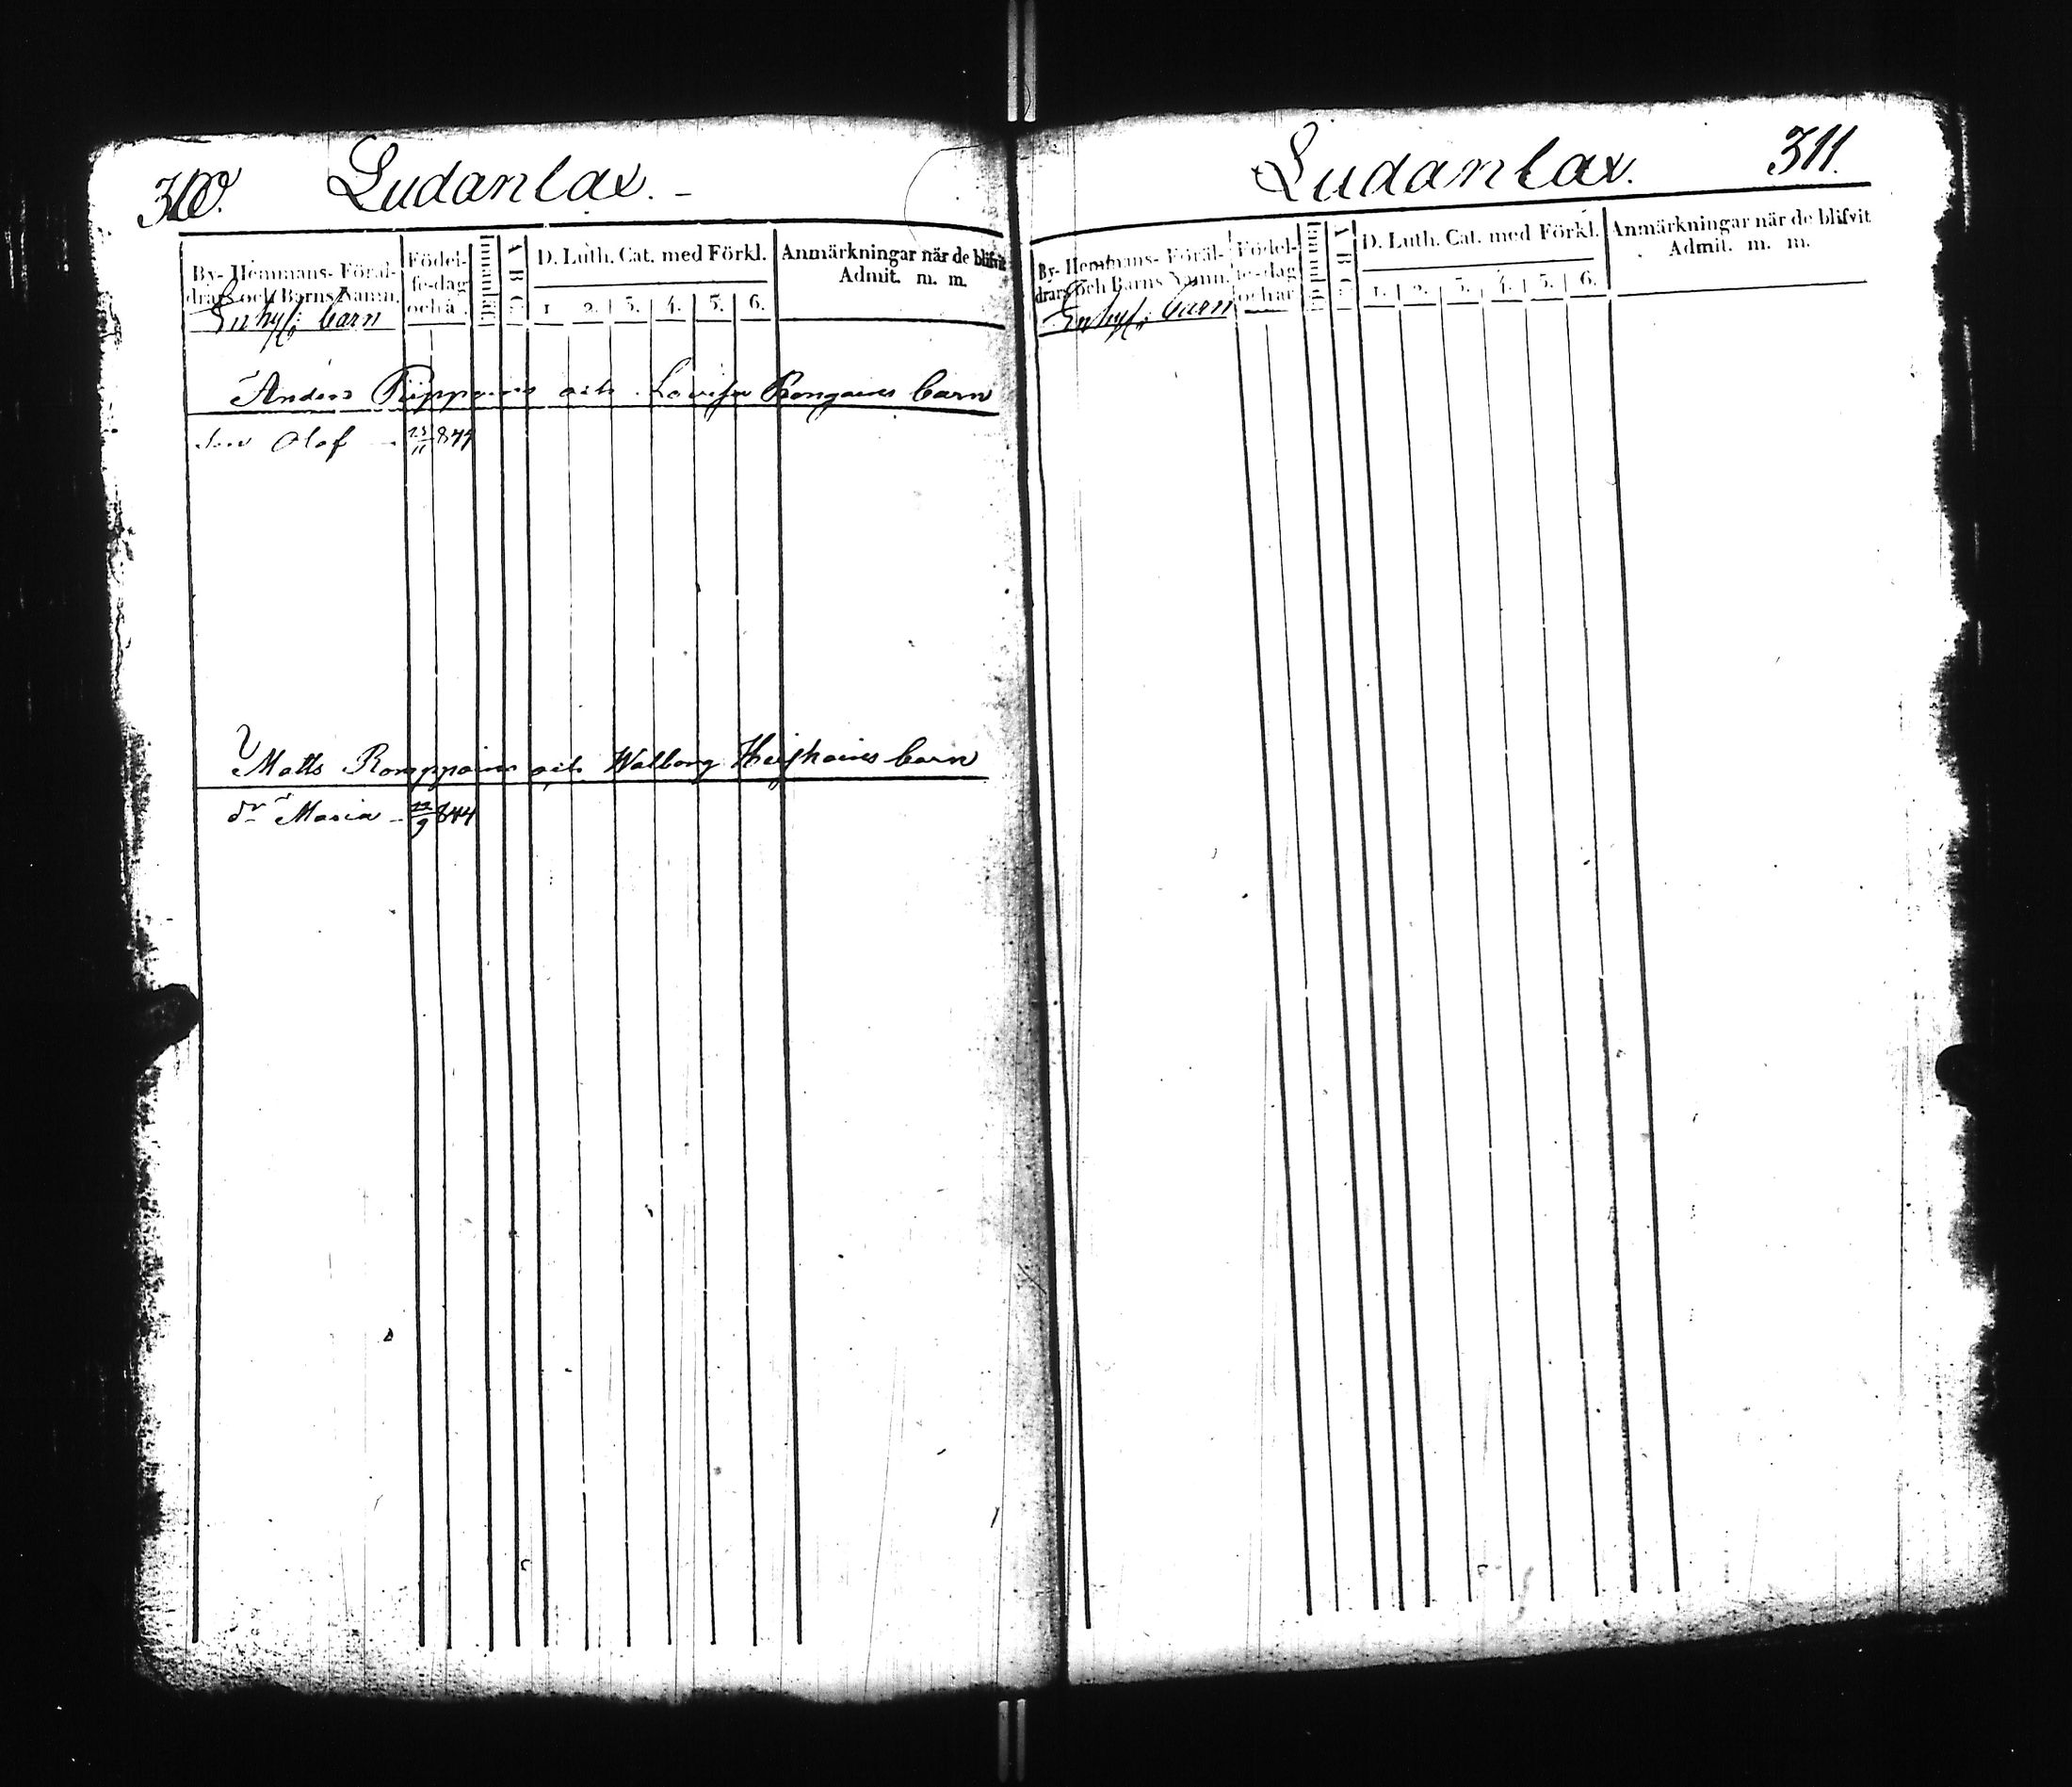 310. Ludanlax. -
By- Hemmans- Föräl-
drars och Barns Namn.
Födel-
se-dag
och å
Innanläs
A B C
D. Luth. Cat. med Förkl.
1. 2. 3. 4. 5. 6.
Anmärkningar när de blifvit
Admit. m. m.
Inhys: barn
Anders och Lovisa barn
Son Olof - 23/11 844
Matts Romppainens och Walborg barn
dr Maria - 22/9 844
Ludanlax. 311.
By- Hemmans- Föräl-
drars och Barns Namn.
Födel-
se-dag
och år
Innanläs
A B C
D. Luth. Cat. med Förkl.
1. 2. 3. 4. 5. 6.
Anmärkningar när de blifvit
Admit. m. m.
Inhys: barn